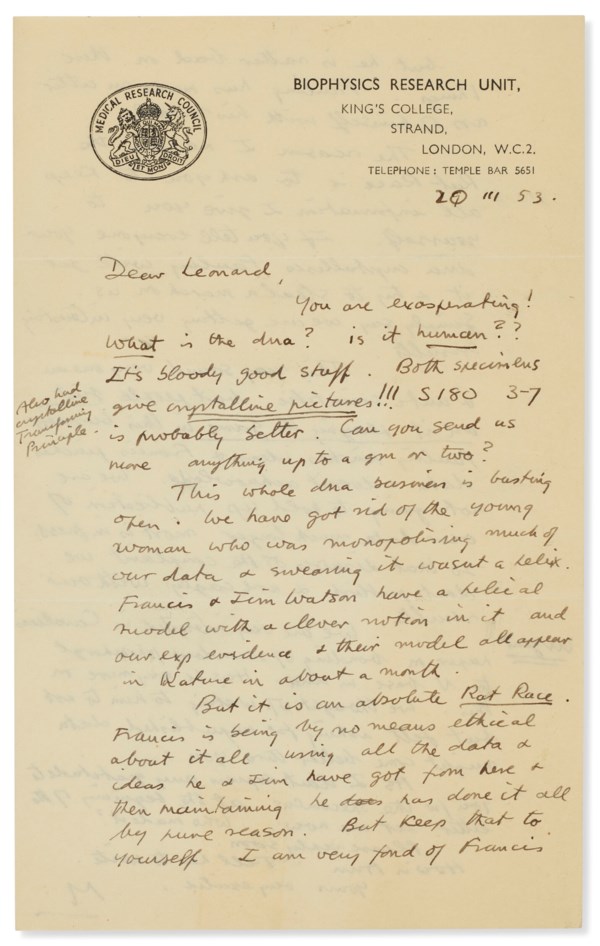 MEDICAL RESEARCH COUNCIL
DIEU ET MON DROIT
BIOPHYSICS RESEARCH UNIT,
KING'S COLLEGE,
STRAND,
LONDON, W.C.2.
TELEPHONE: TEMPLE BAR 5651
III 53.
Dear Leonard,
You are exasperating!
What is the dna? is it human??
It's bloody good stuff. Both specimens
give crystalline pictures!!! S180 3-7
is probably better. Can you send us
more anything up to a gm or two?
Also had
crystalline
Transforming
Principle.
This whole dna business is busting
open. We have got rid of the young
woman who was monopolising much of
our data & swearing it wasnt a helix.
Francis & Jim Watson have a helical
model with a clever notion in it and
our exp evidence & their model all appear
in Nature in about a month.
But it is an absolute Rat Race.
Francis is being by no means ethical
about it all using all the data &
ideas he & Jim have got from here &
then maintaining he has done it all
by pure reason. But keep that to
yourself I am very fond of Francis